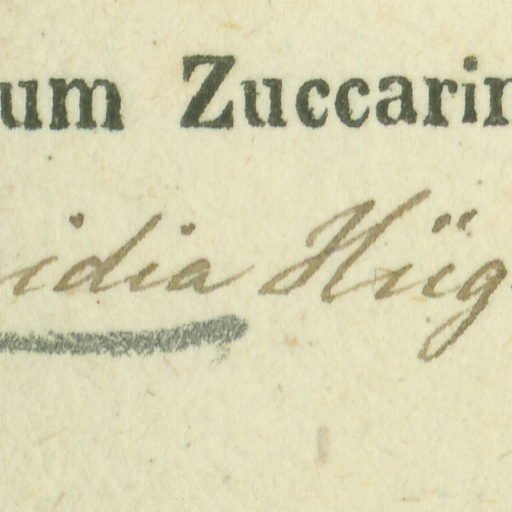 um Zuccarin
idia Hüg